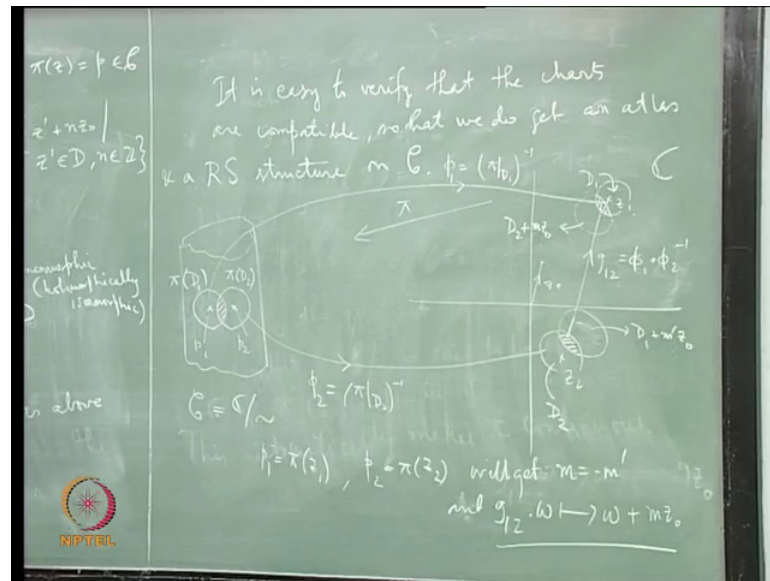 π(z) = p ∈ 𝒞
z' + nz₀ |
z' ∈ D, n ∈ ℤ}
(holomorphically
isomorphic)
above
It is easy to verify that the charts
are compatible, so that we do get an atlas
& a RS structure on 𝒞. ϕ₁ = (π|D₁)⁻¹
ℂ
D₁
z₁
π
D₂ + mz₀
g₁₂ = ϕ₁ ∘ ϕ₂⁻¹
z₀
π(D₁) π(D₂)
p₁ p₂
D₁ + m'z₀
z₂
D₂
ϕ₂ = (π|D₂)⁻¹
𝒞 = ℂ/~
p₁ = π(z₁), p₂ = π(z₂) will get m = -m'
and g₁₂ : ω ⟼ ω + mz₀
NPTEL